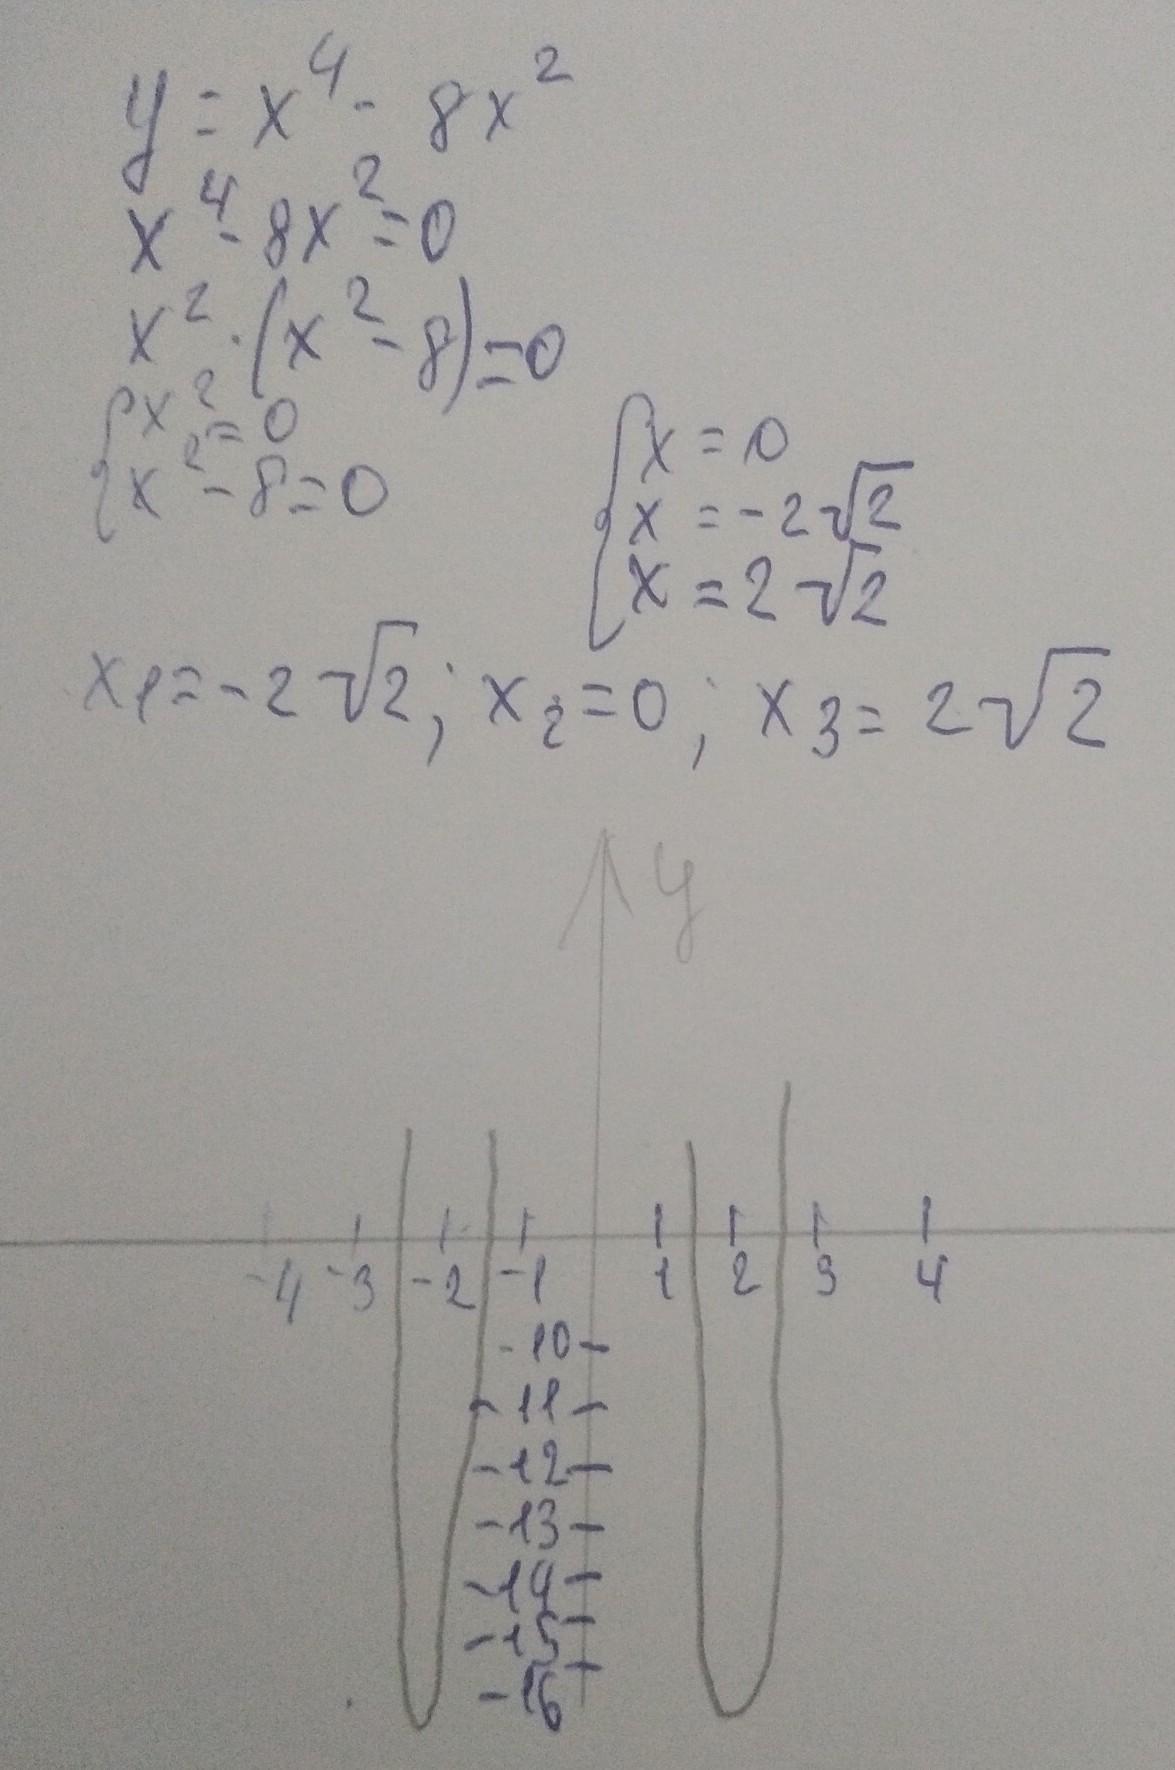 y = x⁴ - 8x²
x⁴ - 8x² = 0
x² · (x² - 8) = 0
{ x² = 0
x² - 8 = 0
{ x = 0
x = -2√2
x = 2√2
x₁ = -2√2; x₂ = 0; x₃ = 2√2
y
-4 -3 -2 -1 1 2 3 4
-10
-11
-12
-13
-14
-15
-16